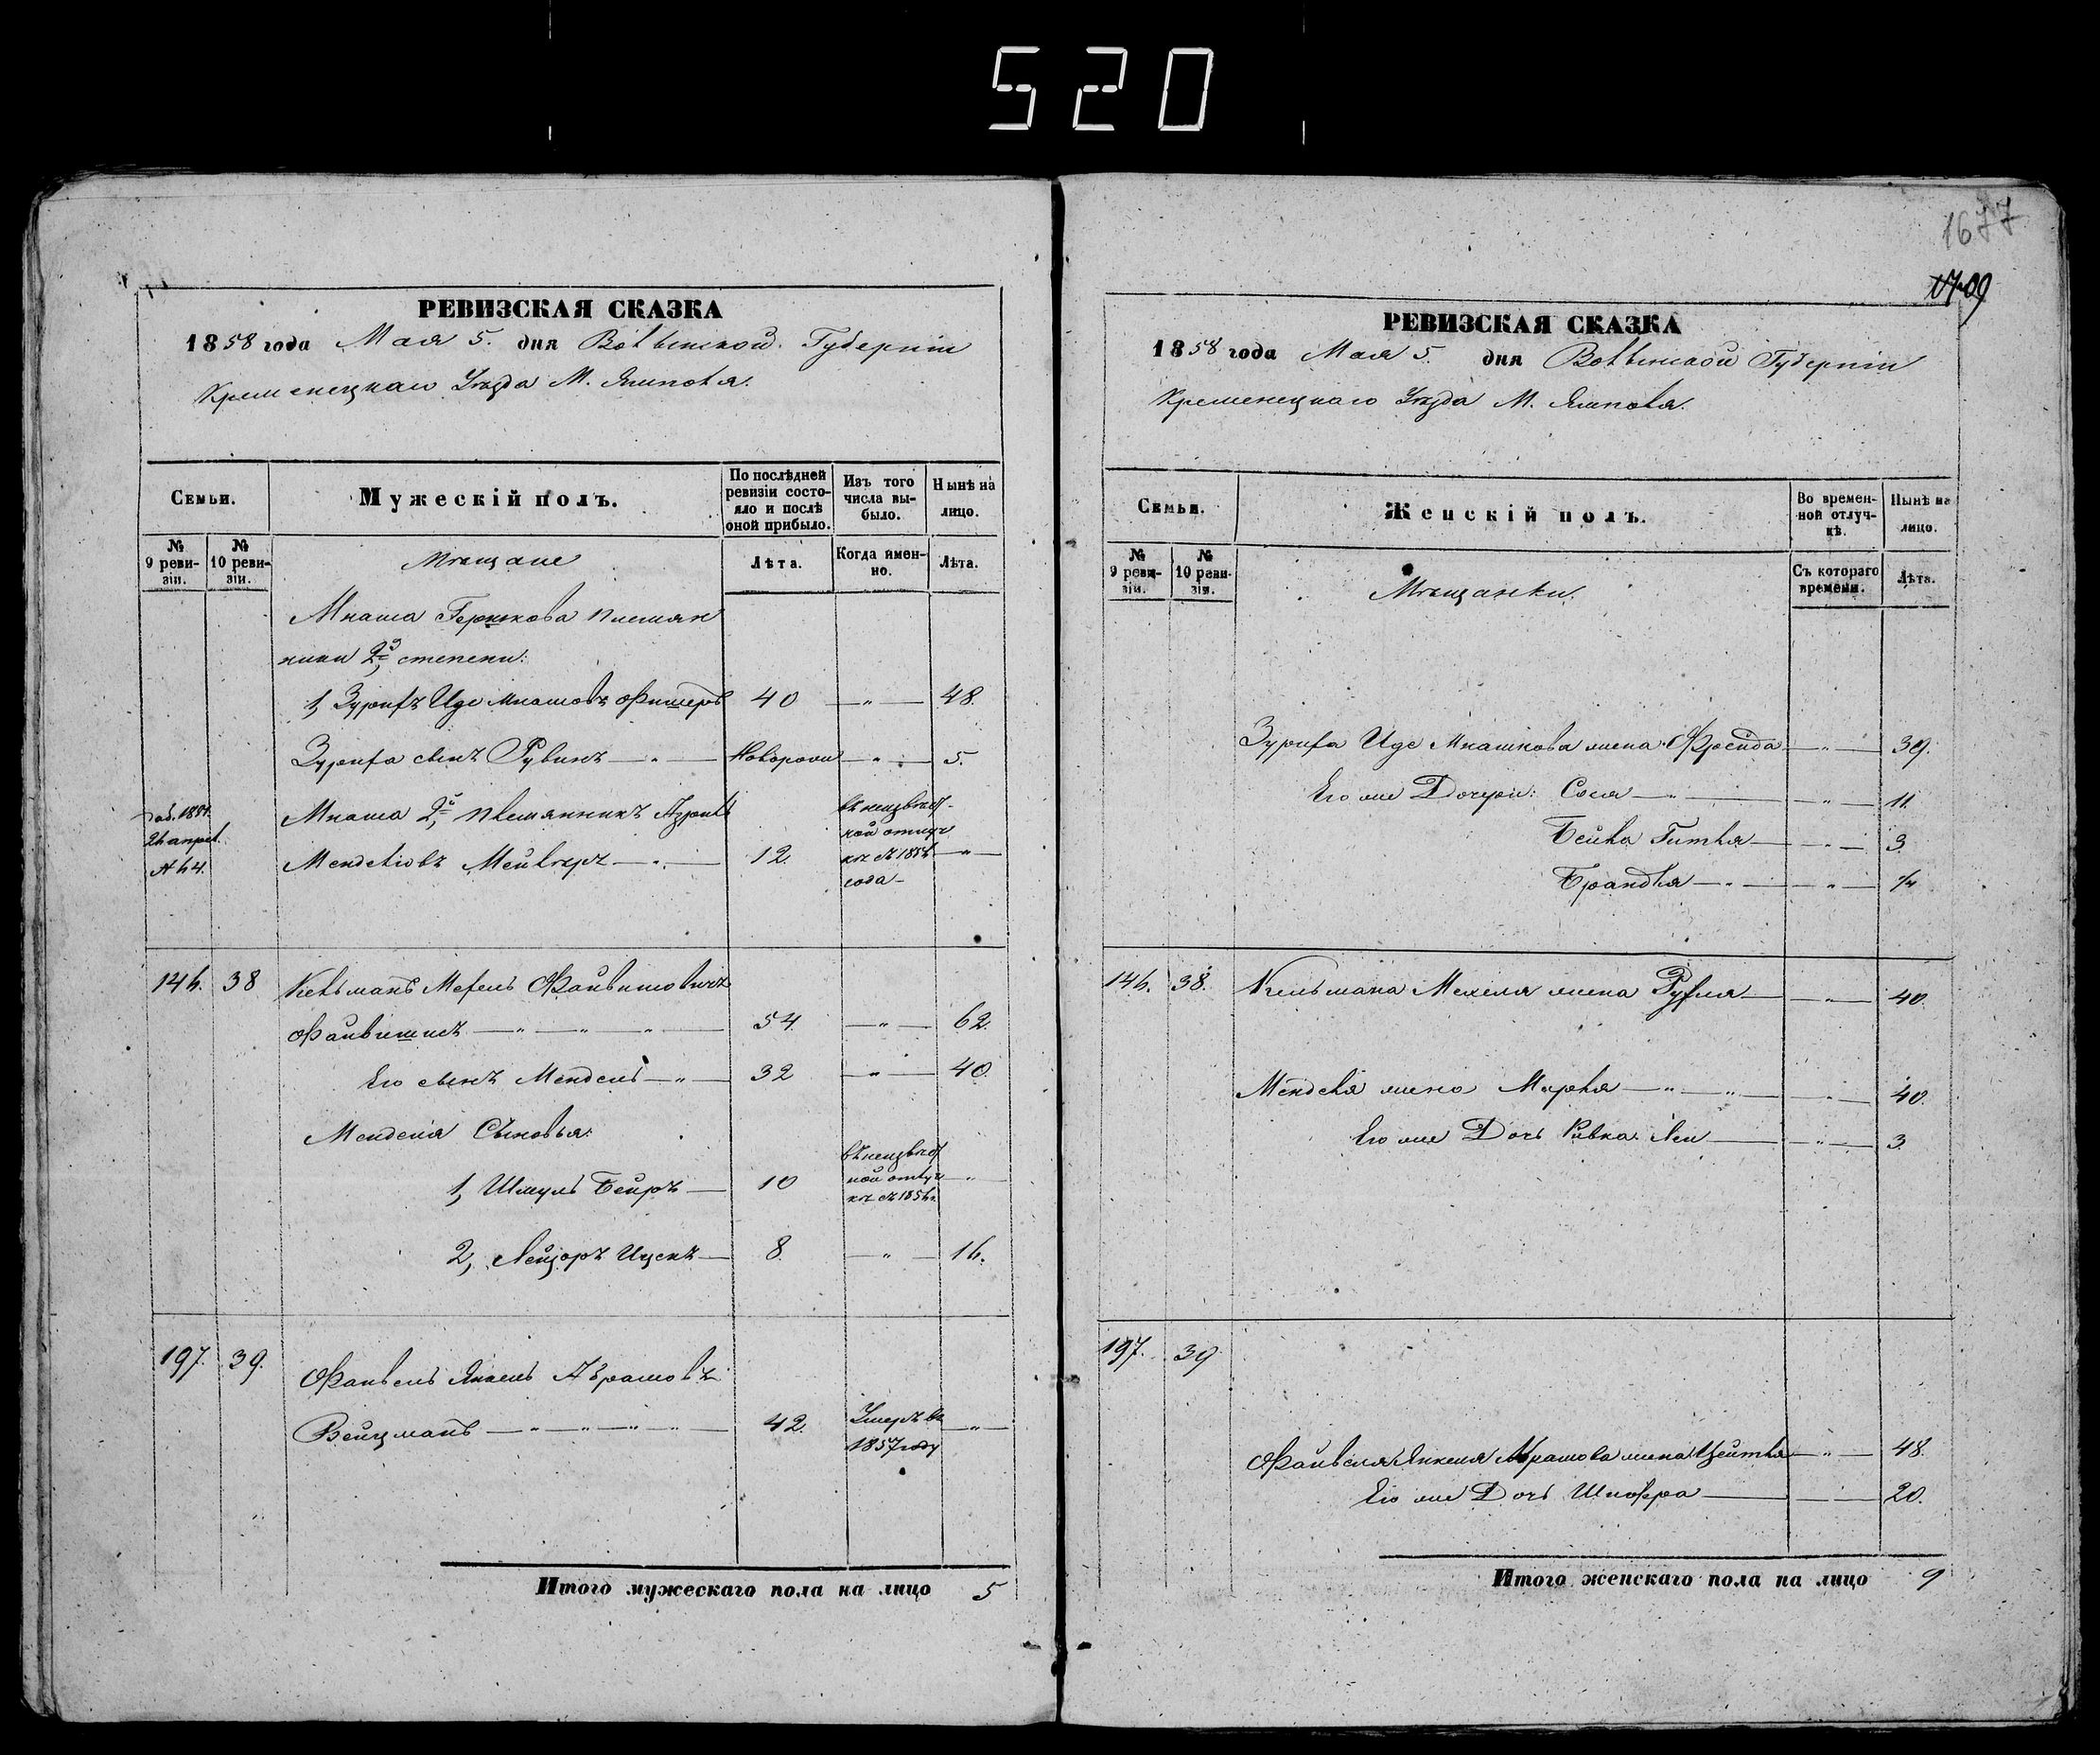 520
РЕВИЗСКАЯ СКАЗКА
1858 года Мая 5. дня Волынской Губерніи
Кременецкаго Уѣзда М. Ямполя.
Семьи.
Мужескій полъ.
По послѣдней ревизіи состояло и послѣ оной прибыло.
Изъ того числа выбыло.
Нынѣ на лицо.
№ 9 ревизіи.
№ 10 ревизіи.
Мѣщане
Лѣта.
Когда имен-но.
Лѣта.
Мнаша Гершкова племян
ники 2й степени:
1, Зурихъ Иде Мнашовъ Фишеръ 40 —„— 48.
Зуриха сынъ Рувинъ —„— Новорожд —„— 5.
Мнаша 2й племянникъ
Менделіовъ Мейлехъ —„— 12. —„—
года —
146. 38 Кельманъ Мехель Файвишовичъ
Файвишисъ —„—„—„— 54. —„— 62.
Его сынъ Мендель —„— 32 —„— 40.
Менделя Сыновья:
1, Шмуль Бейръ — 10 —„—
2, Лейзоръ Ицекъ — 8. —„— 16.
197. 39. Файвель Янкель Абрамовъ
Вейцманъ —„—„—„—„— 42. Умеръ въ 1857 году —„—
Итого мужескаго пола на лицо 5
1677
1709
РЕВИЗСКАЯ СКАЗКА
1858 года Мая 5. дня Волынской Губерніи
Кременецкаго Уѣзда М. Ямполя.
Семьи.
Женскій полъ.
Во времен-ной отлуч-кѣ.
Нынѣ на лицо.
№ 9 реви-зіи.
№ 10 реви-зіи.
Мѣщанки.
Съ котораго времени.
Лѣта.
Зуриха Иде Мнашкова жена Фрейда —„— 39.
Его же Дочери: Сося —„— 11.
Бейла Гитля —„— 3.
Брандля —„—
146. 38. Кельмана Мехеля жена Рухля —„— 40.
Менделя жена Мирля —„— 40.
Его же Дочь Ривка Леи —„— 3.
197. 39.
Файвеля Янкеля Абрамова жена Цейтля —„— 48.
Его же Дочь Шифра — 20.
Итого женскаго пола на лицо 9